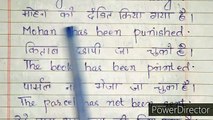 मोहन को दंडित किया गया है।
Mohan has been punished.
किताब छापी जा चुकी है।
The book has been printed.
पार्सल नहीं भेजा जा चुका है।
The parcel has not been
PowerDirector